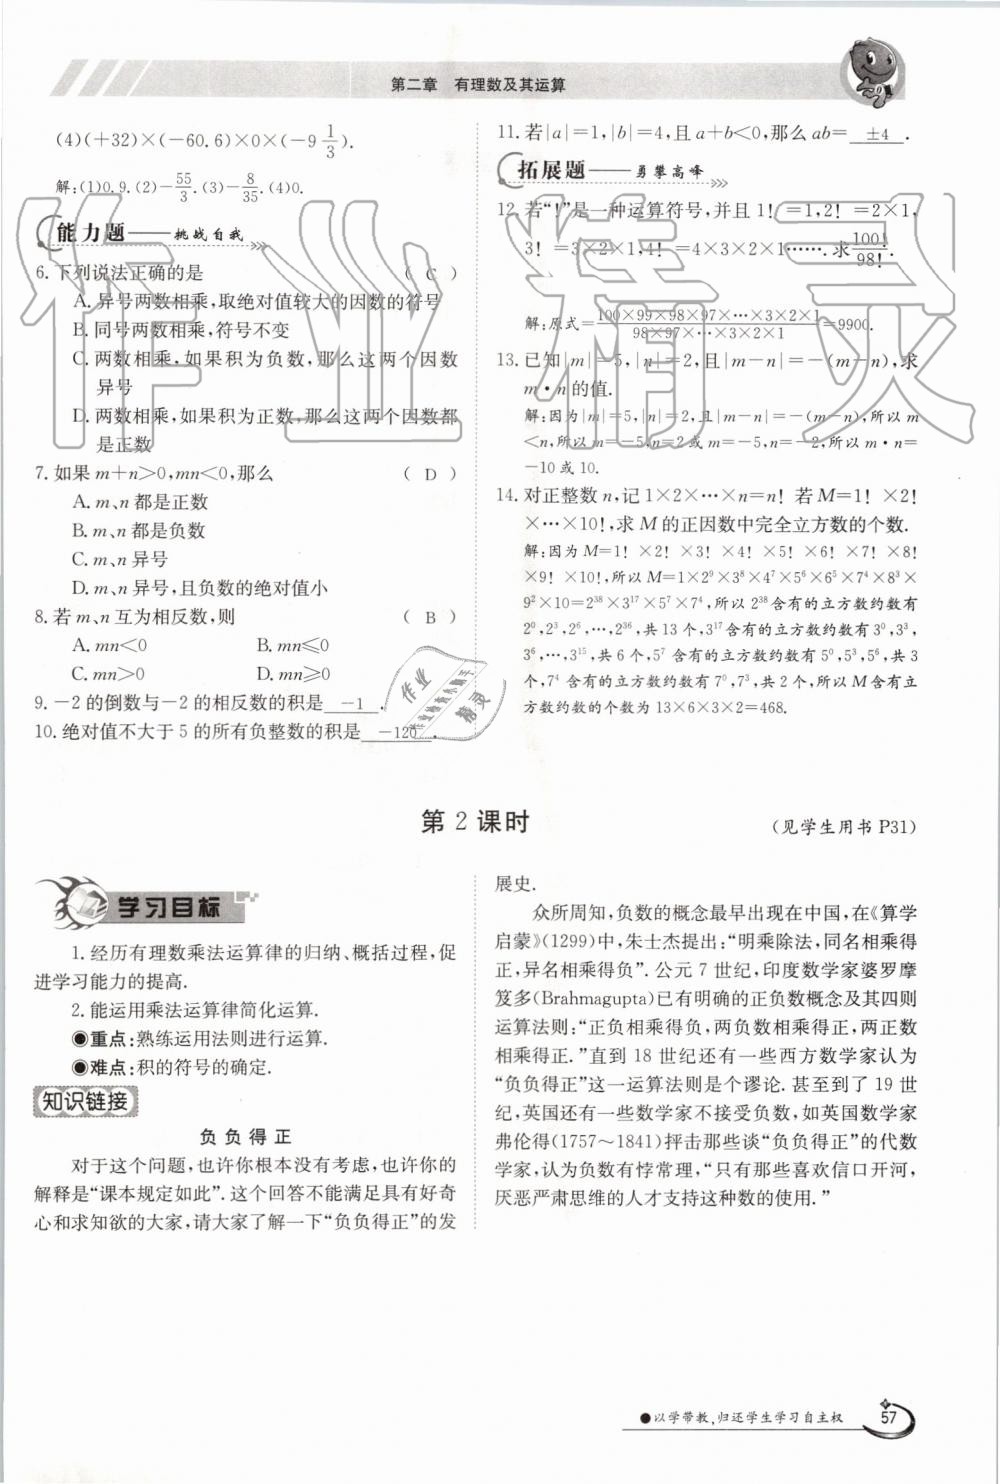 第二章　有理数及其运算
(4)(+32)×(-60.6)×0×(-9 1/3).
解:(1)0.9.(2)-55/3.(3)-8/35.(4)0.
能力题——挑战自我
6.下列说法正确的是 ( C )
A.异号两数相乘,取绝对值较大的因数的符号
B.同号两数相乘,符号不变
C.两数相乘,如果积为负数,那么这两个因数
异号
D.两数相乘,如果积为正数,那么这两个因数都
是正数
7.如果m+n>0,mn<0,那么 ( D )
A.m、n都是正数
B.m、n都是负数
C.m、n异号
D.m、n异号,且负数的绝对值小
8.若m、n互为相反数,则 ( B )
A.mn<0 B.mn≤0
C.mn>0 D.mn≥0
9.-2的倒数与-2的相反数的积是 -1 .
10.绝对值不大于5的所有负整数的积是 -120 .
11.若|a|=1,|b|=4,且a+b<0,那么ab= ±4 .
拓展题——勇攀高峰
12.若“!”是一种运算符号,并且1!=1,2!=2×1,
3!=3×2×1,4!=4×3×2×1…….求100!/98!.
解:原式=100×99×98×97×…×3×2×1/98×97×…×3×2×1=9900.
13.已知|m|=5,|n|=2,且|m-n|=-(m-n),求
m·n的值.
解:因为|m|=5,|n|=2,且|m-n|=-(m-n),所以m
<n,所以m=-5,n=2或m=-5,n=-2,所以m·n=
-10或10.
14.对正整数n,记1×2×…×n=n! 若M=1!×2!
×…×10!,求M的正因数中完全立方数的个数.
解:因为M=1!×2!×3!×4!×5!×6!×7!×8!
×9!×10!,所以M=1×2⁹×3⁸×4⁷×5⁶×6⁵×7⁴×8³×
9²×10=2³⁸×3¹⁷×5⁷×7⁴,所以2³⁸含有的立方数约数有
2⁰,2³,2⁶,…,2³⁶,共13个,3¹⁷含有的立方数约数有3⁰,3³,
3⁶,…,3¹⁵,共6个,5⁷含有的立方数约数有5⁰,5³,5⁶,共3
个,7⁴含有的立方数约数有7⁰,7³,共2个,所以M含有立
方数约数的个数为13×6×3×2=468.
第2课时
(见学生用书P31)
学习目标
1.经历有理数乘法运算律的归纳、概括过程,促
进学习能力的提高.
2.能运用乘法运算律简化运算.
●重点:熟练运用法则进行运算.
●难点:积的符号的确定.
知识链接
负负得正
对于这个问题,也许你根本没有考虑,也许你的
解释是“课本规定如此”.这个回答不能满足具有好奇
心和求知欲的大家,请大家了解一下“负负得正”的发
展史.
众所周知,负数的概念最早出现在中国,在《算学
启蒙》(1299)中,朱士杰提出:“明乘除法,同名相乘得
正,异名相乘得负”.公元7世纪,印度数学家婆罗摩
笈多(Brahmagupta)已有明确的正负数概念及其四则
运算法则:“正负相乘得负,两负数相乘得正,两正数
相乘得正.”直到18世纪还有一些西方数学家认为
“负负得正”这一运算法则是个谬论.甚至到了19世
纪,英国还有一些数学家不接受负数,如英国数学家
弗伦得(1757～1841)抨击那些谈“负负得正”的代数
学家,认为负数有悖常理,“只有那些喜欢信口开河,
厌恶严肃思维的人才支持这种数的使用.”
●以学带教,归还学生学习自主权
57
作业精灵